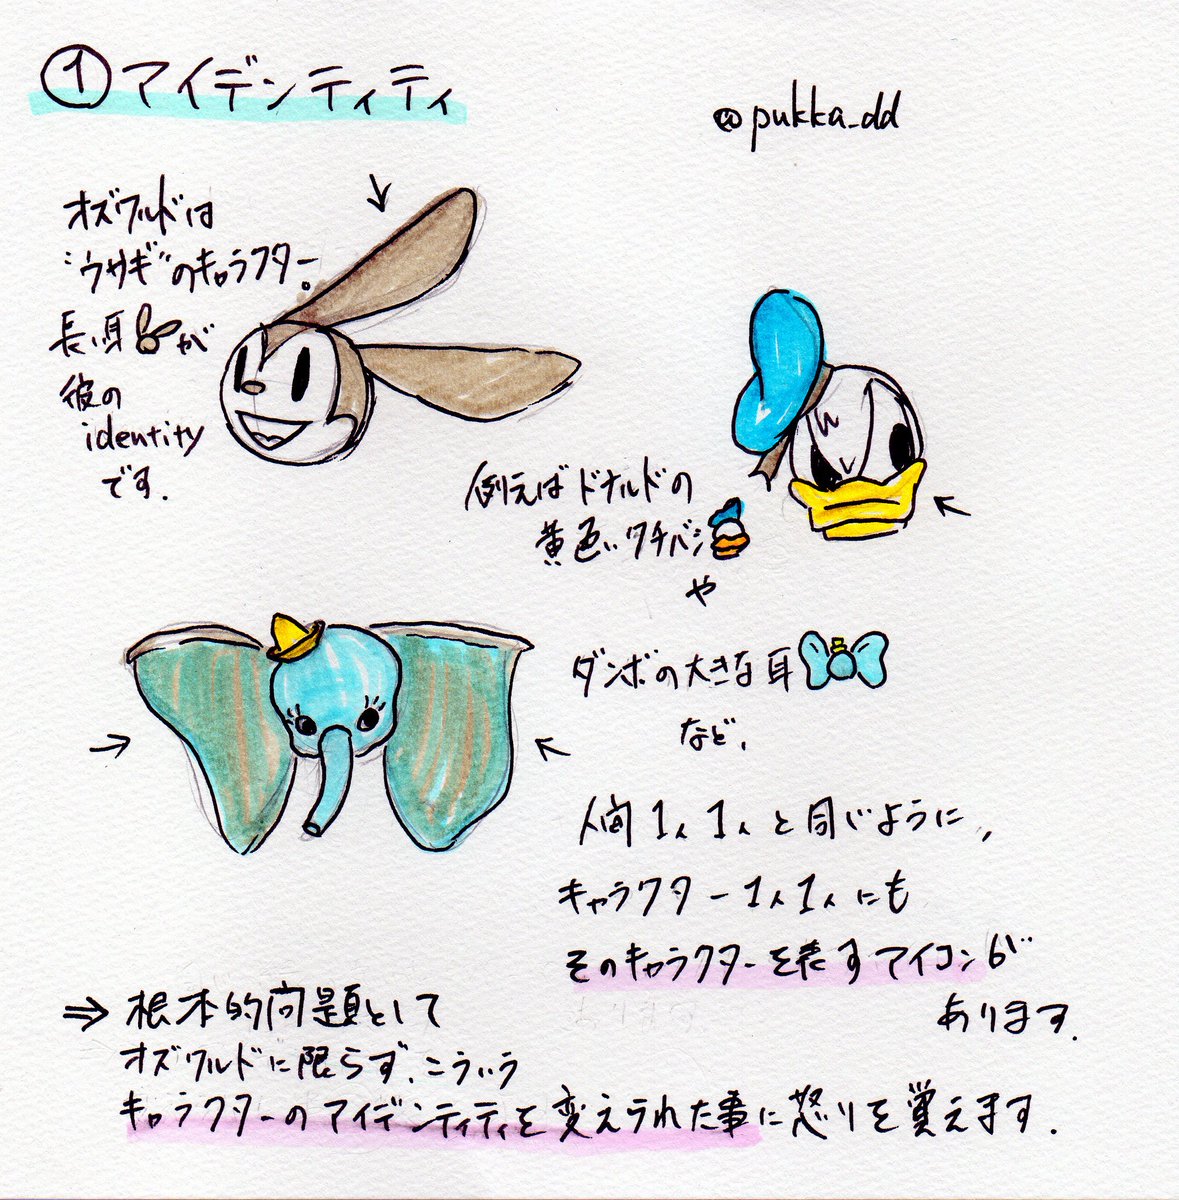 ①アイデンティティ
@pukka_dd
オズワルドは
"ウサギ"のキャラクター。
長い耳が
彼の
identity
です.
例えばドナルドの
黄色いクチバシ
や
ダンボの大きな耳
など、
人間1人1人と同じように、
キャラクター1人1人にも
そのキャラクターを表すアイコンが
あります.
⇒根本的問題として
オズワルドに限らず、こういう
キャラクターのアイデンティティを変えられた事に怒りを覚えます.